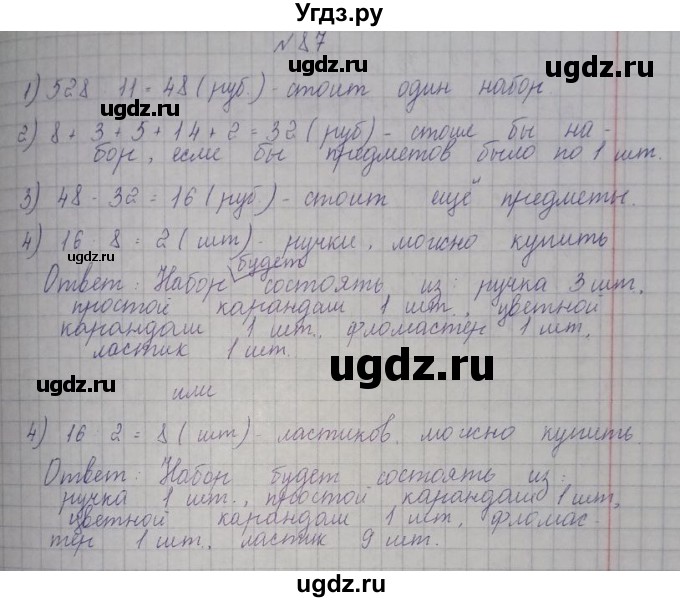 Угдз.ру
№ 87
1) 528 : 11 = 48 (руб.) - стоит один набор.
ugdz.ru
2) 8 + 3 + 5 + 14 + 2 = 32 (руб) - стоил бы на-
бор, если бы предметов было по 1 шт.
ugdz.ru
3) 48 - 32 = 16 (руб) - стоит ещё предметы.
4) 16 : 8 = 2 (шт) - ручки, можно купить
ugdz.ru
будет
Ответ: Набор состоять из: ручка 3 шт,
простой карандаш 1 шт., цветной
карандаш 1 шт., фломастер 1 шт,
ластик 1 шт.
ugdz.ru
ugdz.ru
или
4) 16 : 2 = 8 (шт) - ластиков. можно купить.
ugdz.ru
Ответ: Набор будет состоять из:
ручка 1 шт., простой карандаш 1 шт,
цветной карандаш 1 шт, фломас-
тер 1 шт, ластик 9 шт.
ugdz.ru
ugdz.ru